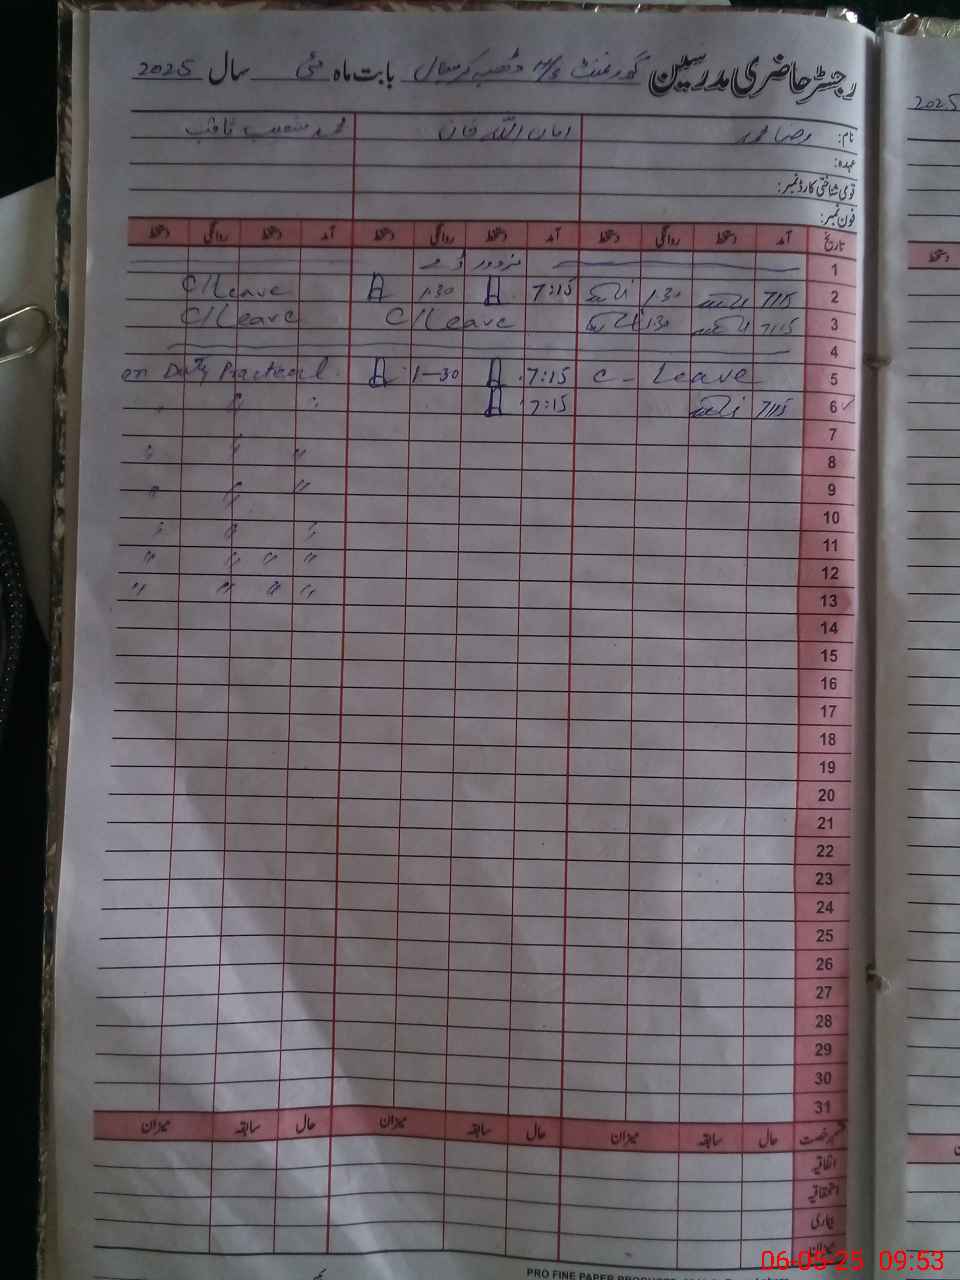 رجسٹر حاضری مدرسین گورنمنٹ M/S بابت ماہ مئی سال 2025
نام: رضا محمد امان اللہ خان محمد شعیب ثاقب
عہدہ:
قومی شناختی کارڈ نمبر:
فون نمبر:
تاریخ آمد دستخط روانگی دستخط آمد دستخط روانگی دستخط آمد دستخط روانگی دستخط
1 مزدور ڈے
2 7:15 1:30 7:15 1:30 C/Leave
3 7:15 1:30 C/Leave C/Leave
4
5 C- Leave 7:15 1-30 on Duty Practical
6 7:15 7:15 " "
7
8 " " "
9 " " "
10
11 " " "
12 " " " "
13 " " " "
14
15
16
17
18
19
20
21
22
23
24
25
26
27
28
29
30
31
قسم رخصت حال سابقہ میزان حال سابقہ میزان حال سابقہ میزان
اتفاقیہ
استحقاقیہ
بیماری
میزان
PRO FINE PAPER PRODUCTS
2025
دستخط
06-05-25 09:53